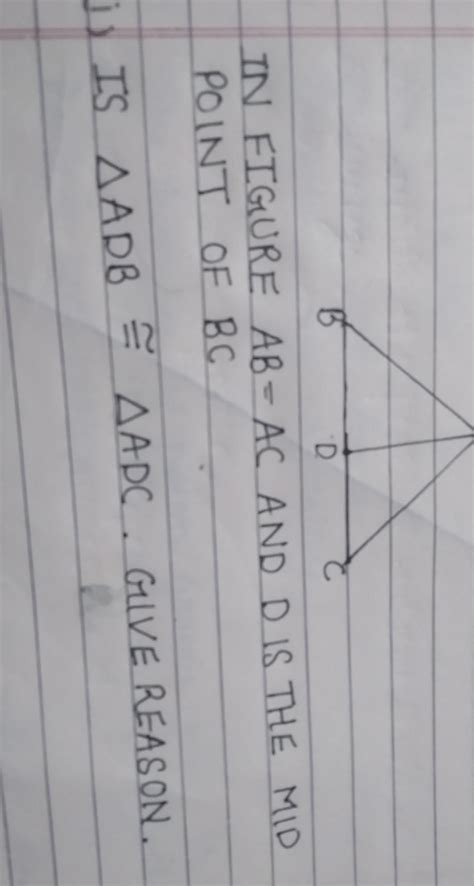 B D C
IN FIGURE AB = AC AND D IS THE MID
POINT OF BC
i) IS △ADB ≅ △ADC. GIVE REASON.